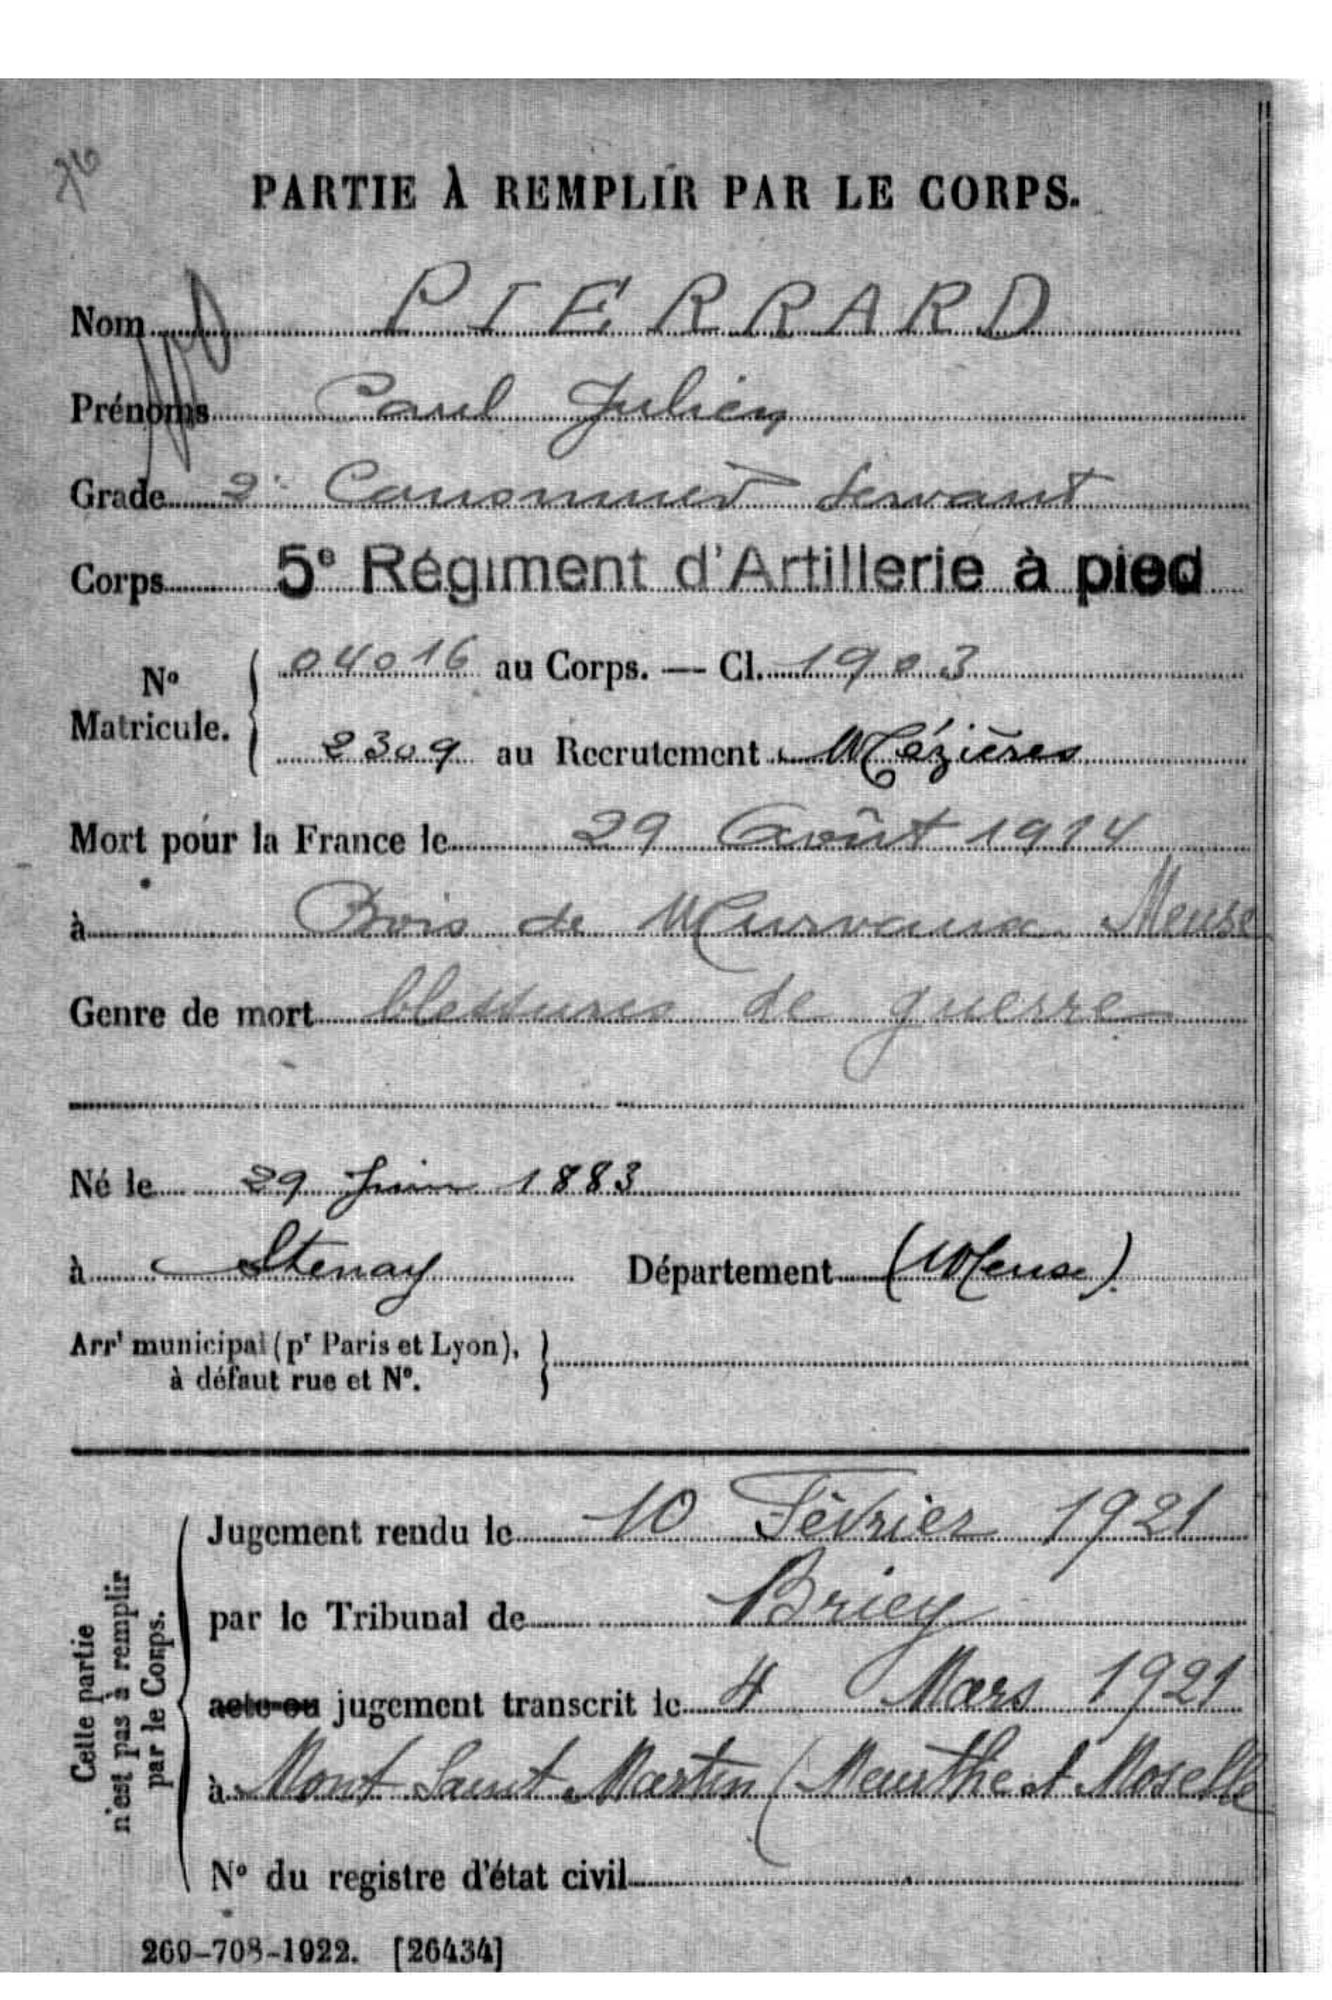 PARTIE À REMPLIR PAR LE CORPS.
Nom PIERRARD
Prénoms Paul Julien
Grade 2e Canonnier Servant
Corps 5e Régiment d'Artillerie à pied
No Matricule. { 04016 au Corps. — Cl. 1903
2309 au Recrutement Mézières
Mort pour la France le 29 Août 1914
à Bois de Murvaux Meuse
Genre de mort blessures de guerre
Né le 29 Juin 1883
à Stenay Département (Meuse).
Arrt municipal (pr Paris et Lyon), }
à défaut rue et No.
Cette partie n'est pas à remplir par le Corps.
Jugement rendu le 10 Février 1921
par le Tribunal de Briey
acte ou jugement transcrit le 4 Mars 1921
à Mont Saint Martin (Meurthe et Moselle
No du registre d'état civil
269-708-1922. [26434]